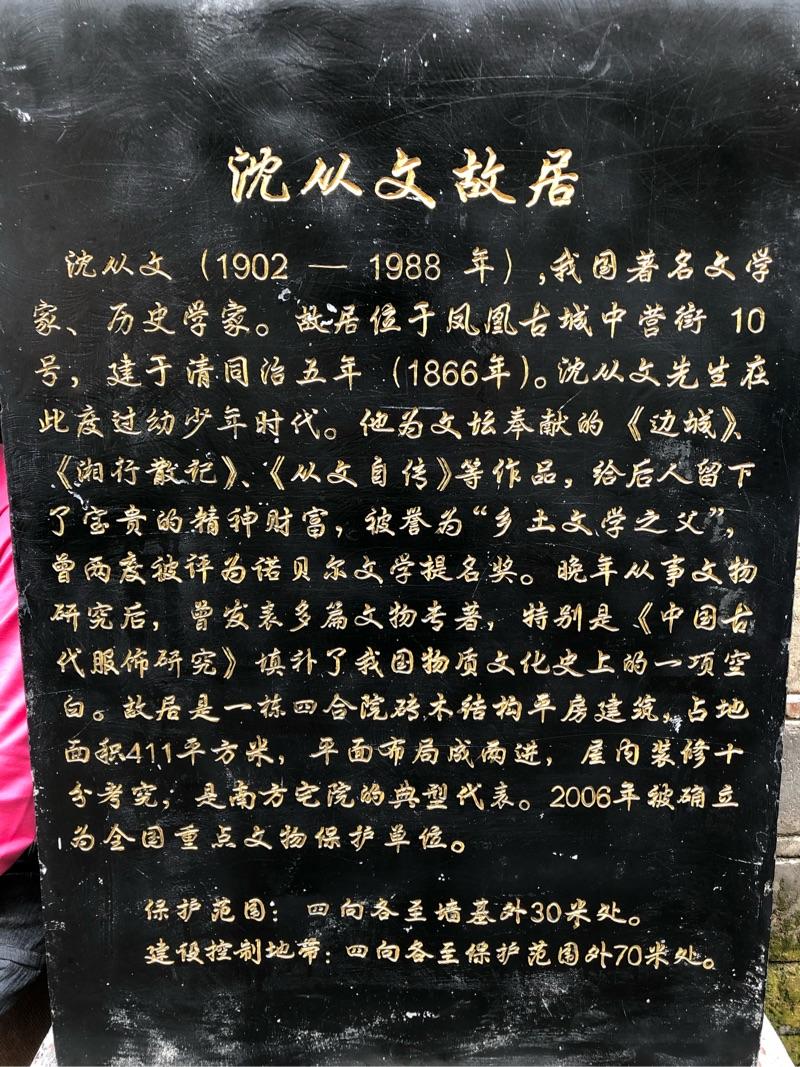 沈从文故居
沈从文（1902 — 1988 年），我国著名文学
家、历史学家。故居位于凤凰古城中营街 10
号，建于清同治五年（1866年）。沈从文先生在
此度过幼少年时代。他为文坛奉献的《边城》、
《湘行散记》、《从文自传》等作品，给后人留下
了宝贵的精神财富，被誉为“乡土文学之父”，
曾两度被评为诺贝尔文学提名奖。晚年从事文物
研究后，曾发表多篇文物专著，特别是《中国古
代服饰研究》填补了我国物质文化史上的一项空
白。故居是一栋四合院砖木结构平房建筑，占地
面积411平方米，平面布局成两进，屋内装修十
分考究；是南方宅院的典型代表。2006年被确立
为全国重点文物保护单位。
保护范围：四向各至墙基外30米处。
建设控制地带：四向各至保护范围外70米处。